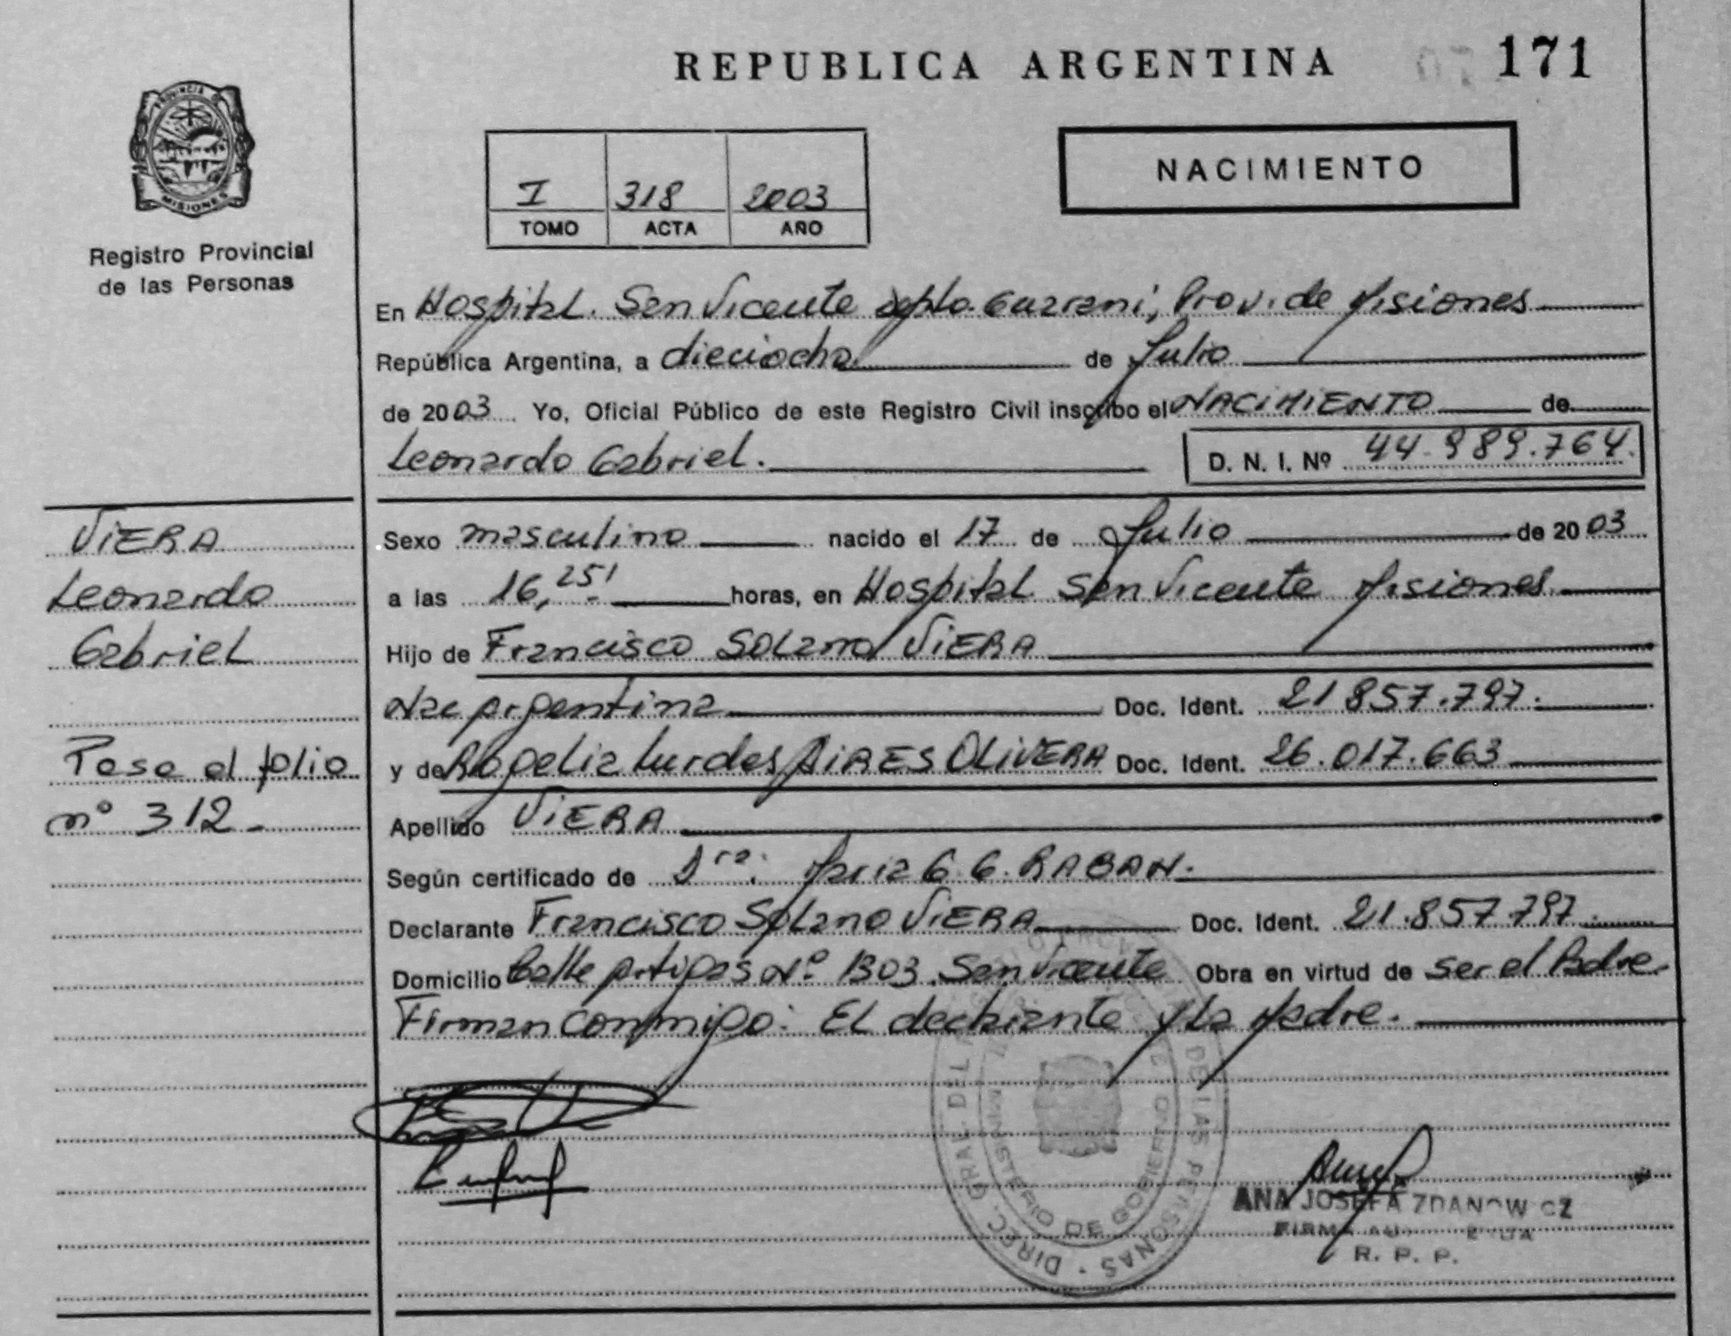 REPUBLICA ARGENTINA 171
PROVINCIA DE
MISIONES
Registro Provincial
de las Personas
I 318 2003
TOMO ACTA AÑO
NACIMIENTO
En Hospital. San Vicente Depto. Guarani, Prov. de Misiones
República Argentina, a dieciocho de Julio
de 2003 Yo, Oficial Público de este Registro Civil inscribo el NACIMIENTO de
Leonardo Gabriel. D. N. I. Nº 44.989.764.
VIERA
Leonardo
Gabriel
Pase al folio
nº 312.
Sexo masculino nacido el 17 de Julio de 2003
a las 16,25' horas, en Hospital San Vicente Misiones
Hijo de Francisco Solano VIERA
Nac Argentina Doc. Ident. 21.857.797.
y de Rogelia Lurdes AIRES OLIVERA Doc. Ident. 26.017.663
Apellido VIERA
Según certificado de Dra. Maria G. G. RABAN.
Declarante Francisco Solano VIERA Doc. Ident. 21.857.797.
Domicilio Calle Artigas Nº 1303. San Vicente Obra en virtud de ser el Padre.
Firman conmigo: El declarante y la Madre.
DIREC. GRAL. DEL DE LAS PERSONAS
MINISTERIO DE GOBIERNO
ANA JOSEFA ZDANOWICZ
FIRMA
R. P. P.